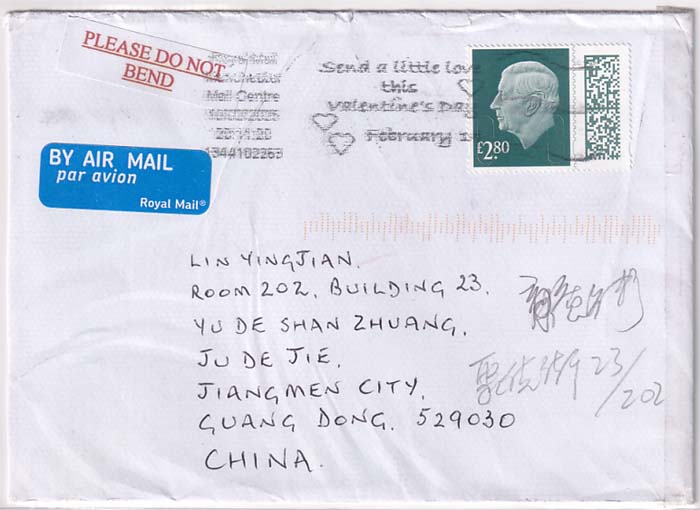 PLEASE DO NOT
BEND
Royal Mail
Manchester
Mail Centre
1344102263
Send a little love
this
Valentine's Day
February 14
£2.80
BY AIR MAIL
par avion
Royal Mail®
LIN YINGJIAN.
ROOM 202, BUILDING 23.
YU DE SHAN ZHUANG,
JU DE JIE,
JIANGMEN CITY,
GUANG DONG. 529030
CHINA.
23/202